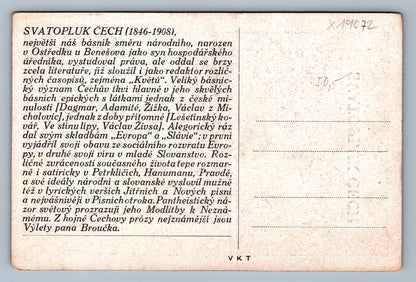 SVATOPLUK ČECH (1846-1908),
největší náš básník směru národního, narozen
v Ostředku u Benešova jako syn hospodářského
úředníka, vystudoval práva, ale oddal se brzy
zcela literatuře, již sloužil i jako redaktor rozlič-
ných časopisů, zejména „Květů“. Veliký básnic-
ký význam Čechův tkví hlavně v jeho skvělých
básních epických s látkami jednak z české mi-
nulosti [Dagmar, Adamité, Žižka, Václav z Mi-
chalovic], jednak z doby přítomné [Lešetínský ko-
vář, Ve stínu lípy, Václav Živsa]. Alegorický ráz
dal svým skladbám „Evropa“ a „Slávie“: v první
vyjádřil svoji obavu ze sociálního rozvratu Evro-
py, v druhé svoji víru v mladé Slovanstvo. Roz-
ličné zvrácenosti současného života tepe rozmar-
ně i satiricky v Petrklíčích, Hanumanu, Pravdě,
a své ideály národní a slovanské vyslovil mužně
též v lyrických verších Jitřních a Nových písní
a nejvášnivěji v Písních otroka. Pantheistický ná-
zor světový prozrazují jeho Modlitby k Nezná-
mému. Z hojné Čechovy prózy nejznámější jsou
Výlety pana Broučka.
VKT
X19072
50,-